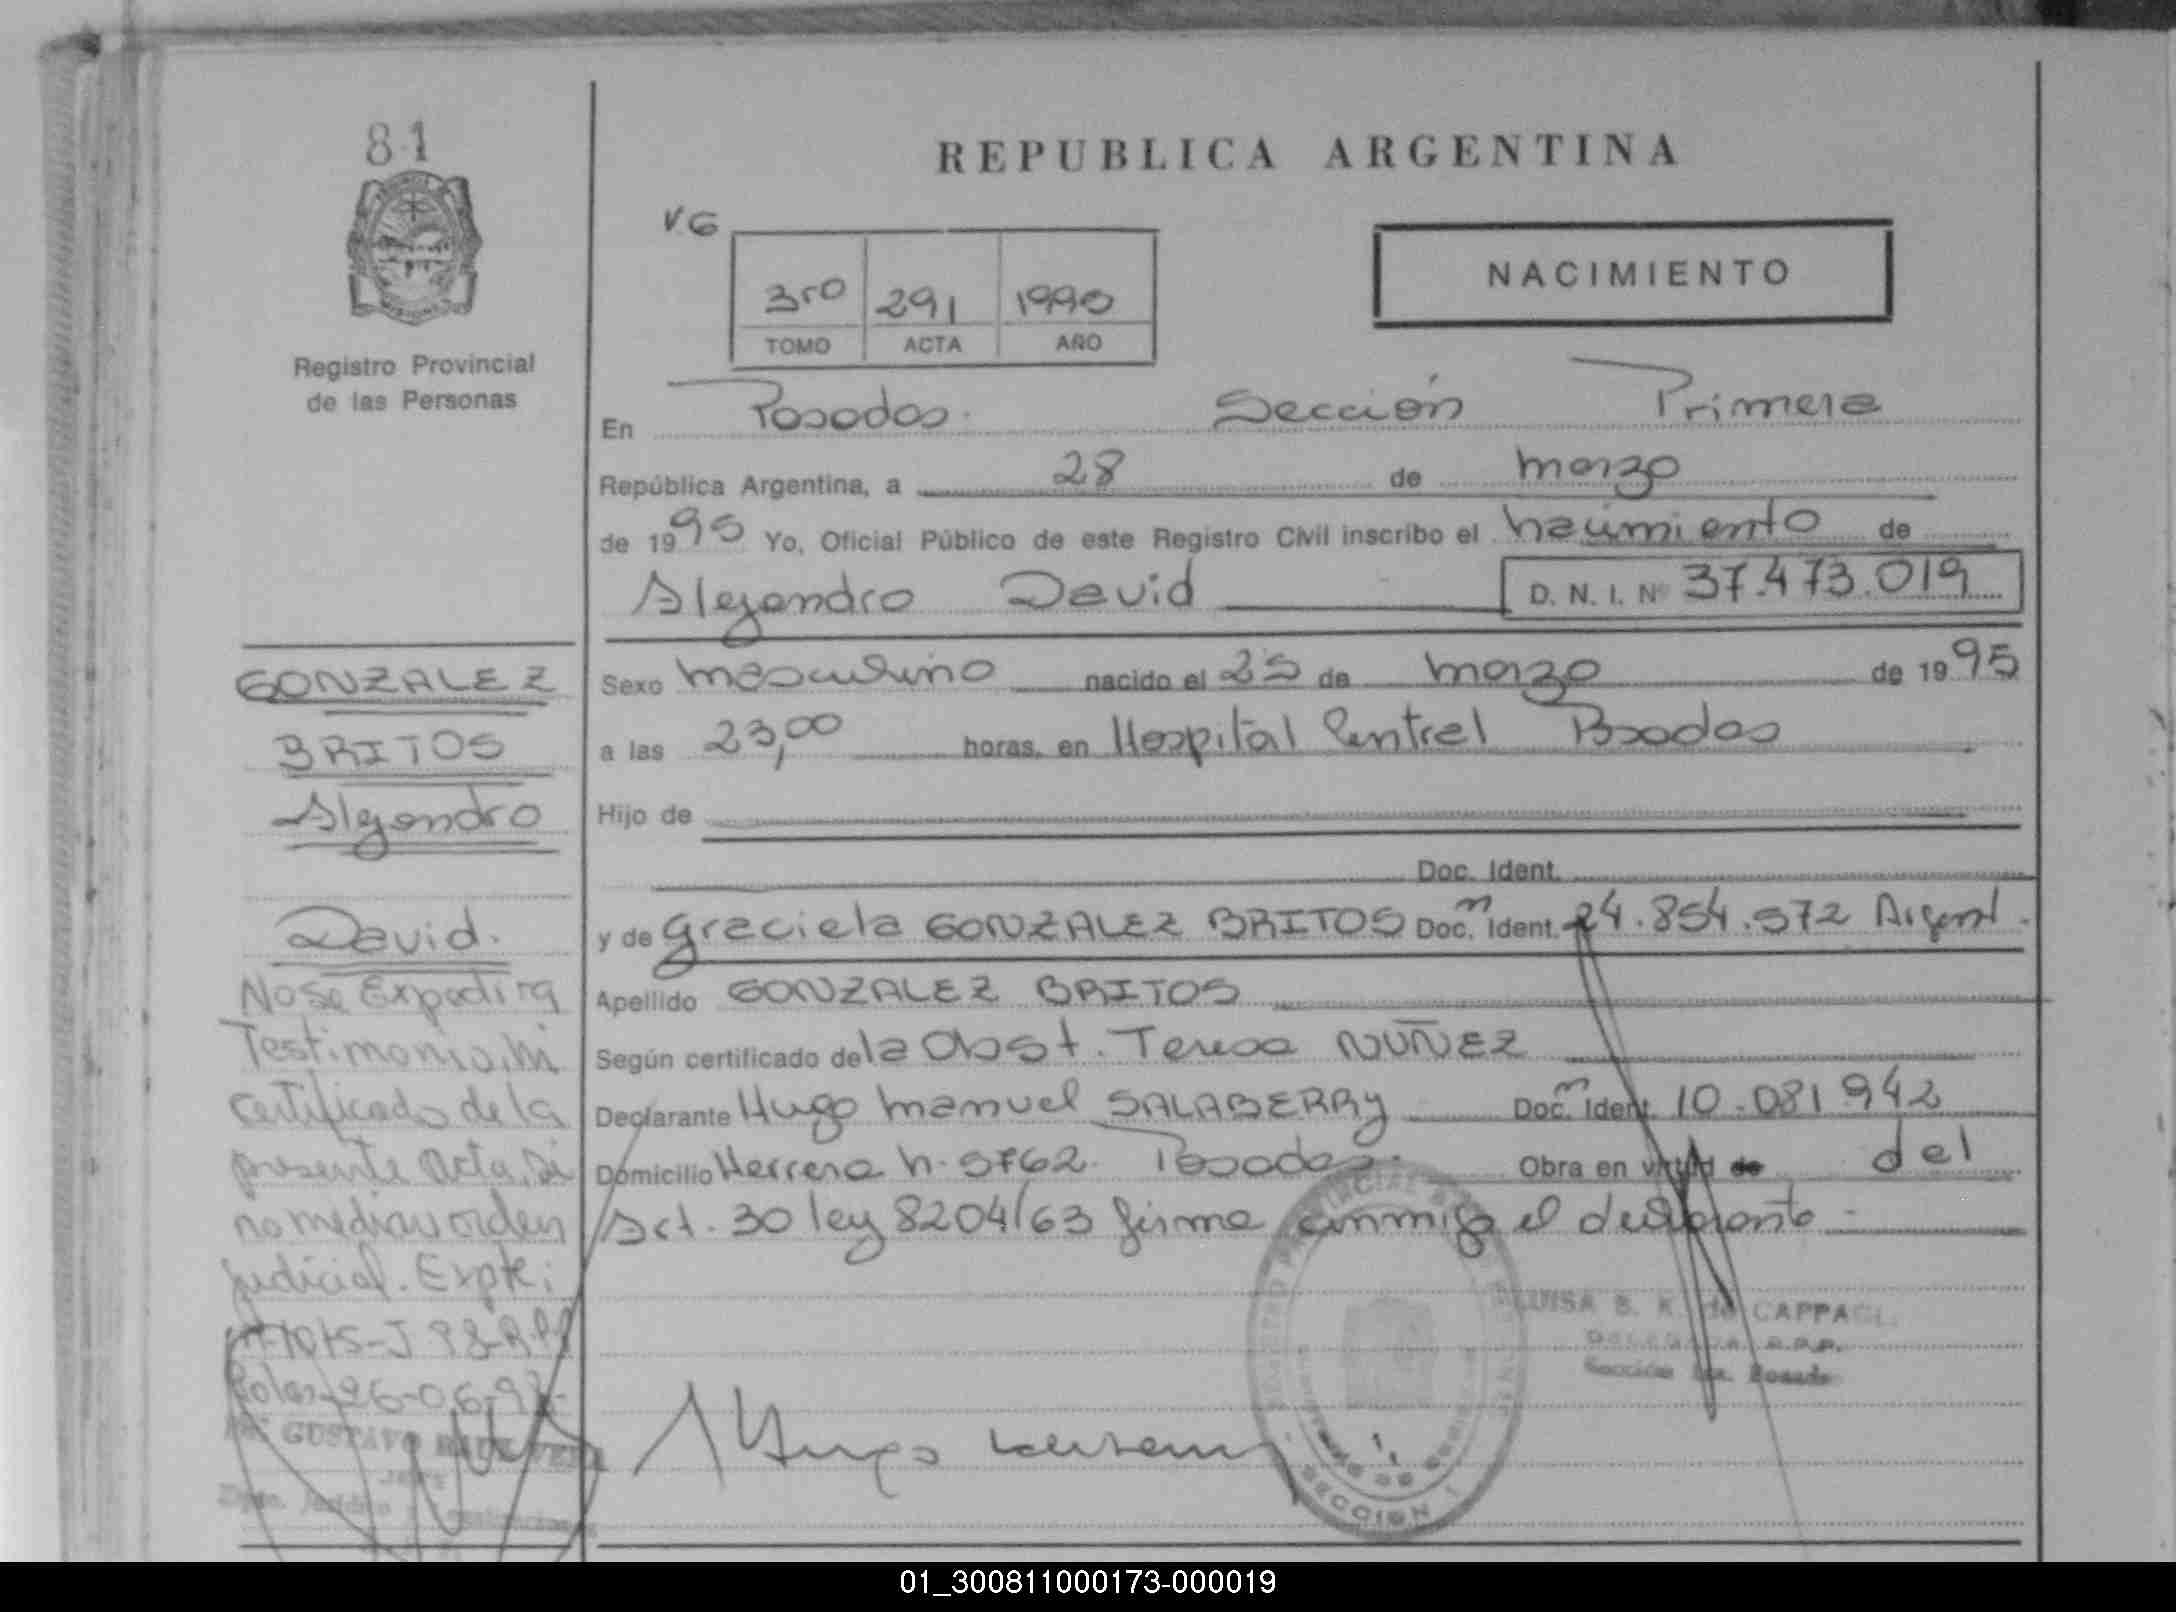 81
REPUBLICA ARGENTINA
V.G
NACIMIENTO
3ro 291 1995
TOMO ACTA AÑO
Registro Provincial
de las Personas
En Posadas. Sección Primera
República Argentina, a 28 de marzo
de 1995 Yo, Oficial Público de este Registro Civil inscribo el nacimiento de
Alejandro David D. N. I. Nº 37.473.019
Sexo masculino nacido el 25 de marzo de 1995
a las 23,00 horas, en Hospital Central Posadas
Hijo de
Doc. Ident.
y de Graciela GONZALEZ BRITOS Doc. Ident. 24.854.572 Argent.
Apellido GONZALEZ BRITOS
Según certificado de la Obst. Teresa NUÑEZ
Declarante Hugo Manuel SALABERRY Doc. Ident. 10.081942
Domicilio Herrera n. 5762. Posadas. Obra en virtud de del
Art. 30 ley 8204/63 firma conmigo el declarante
GONZALEZ
BRITOS
Alejandro
David.
No se Expedira
Testimonio, ni
certificado de la
presente acta, si
no mediau orden
judicial. Expte:
LUISA B. K. de CAPPAGLI
DELEGADA R.P.P.
Sección 1ra. Posadas
Hugo
Dr. GUSTAVO RAUL VERA
JEFE
SECCION 1
01_300811000173-000019